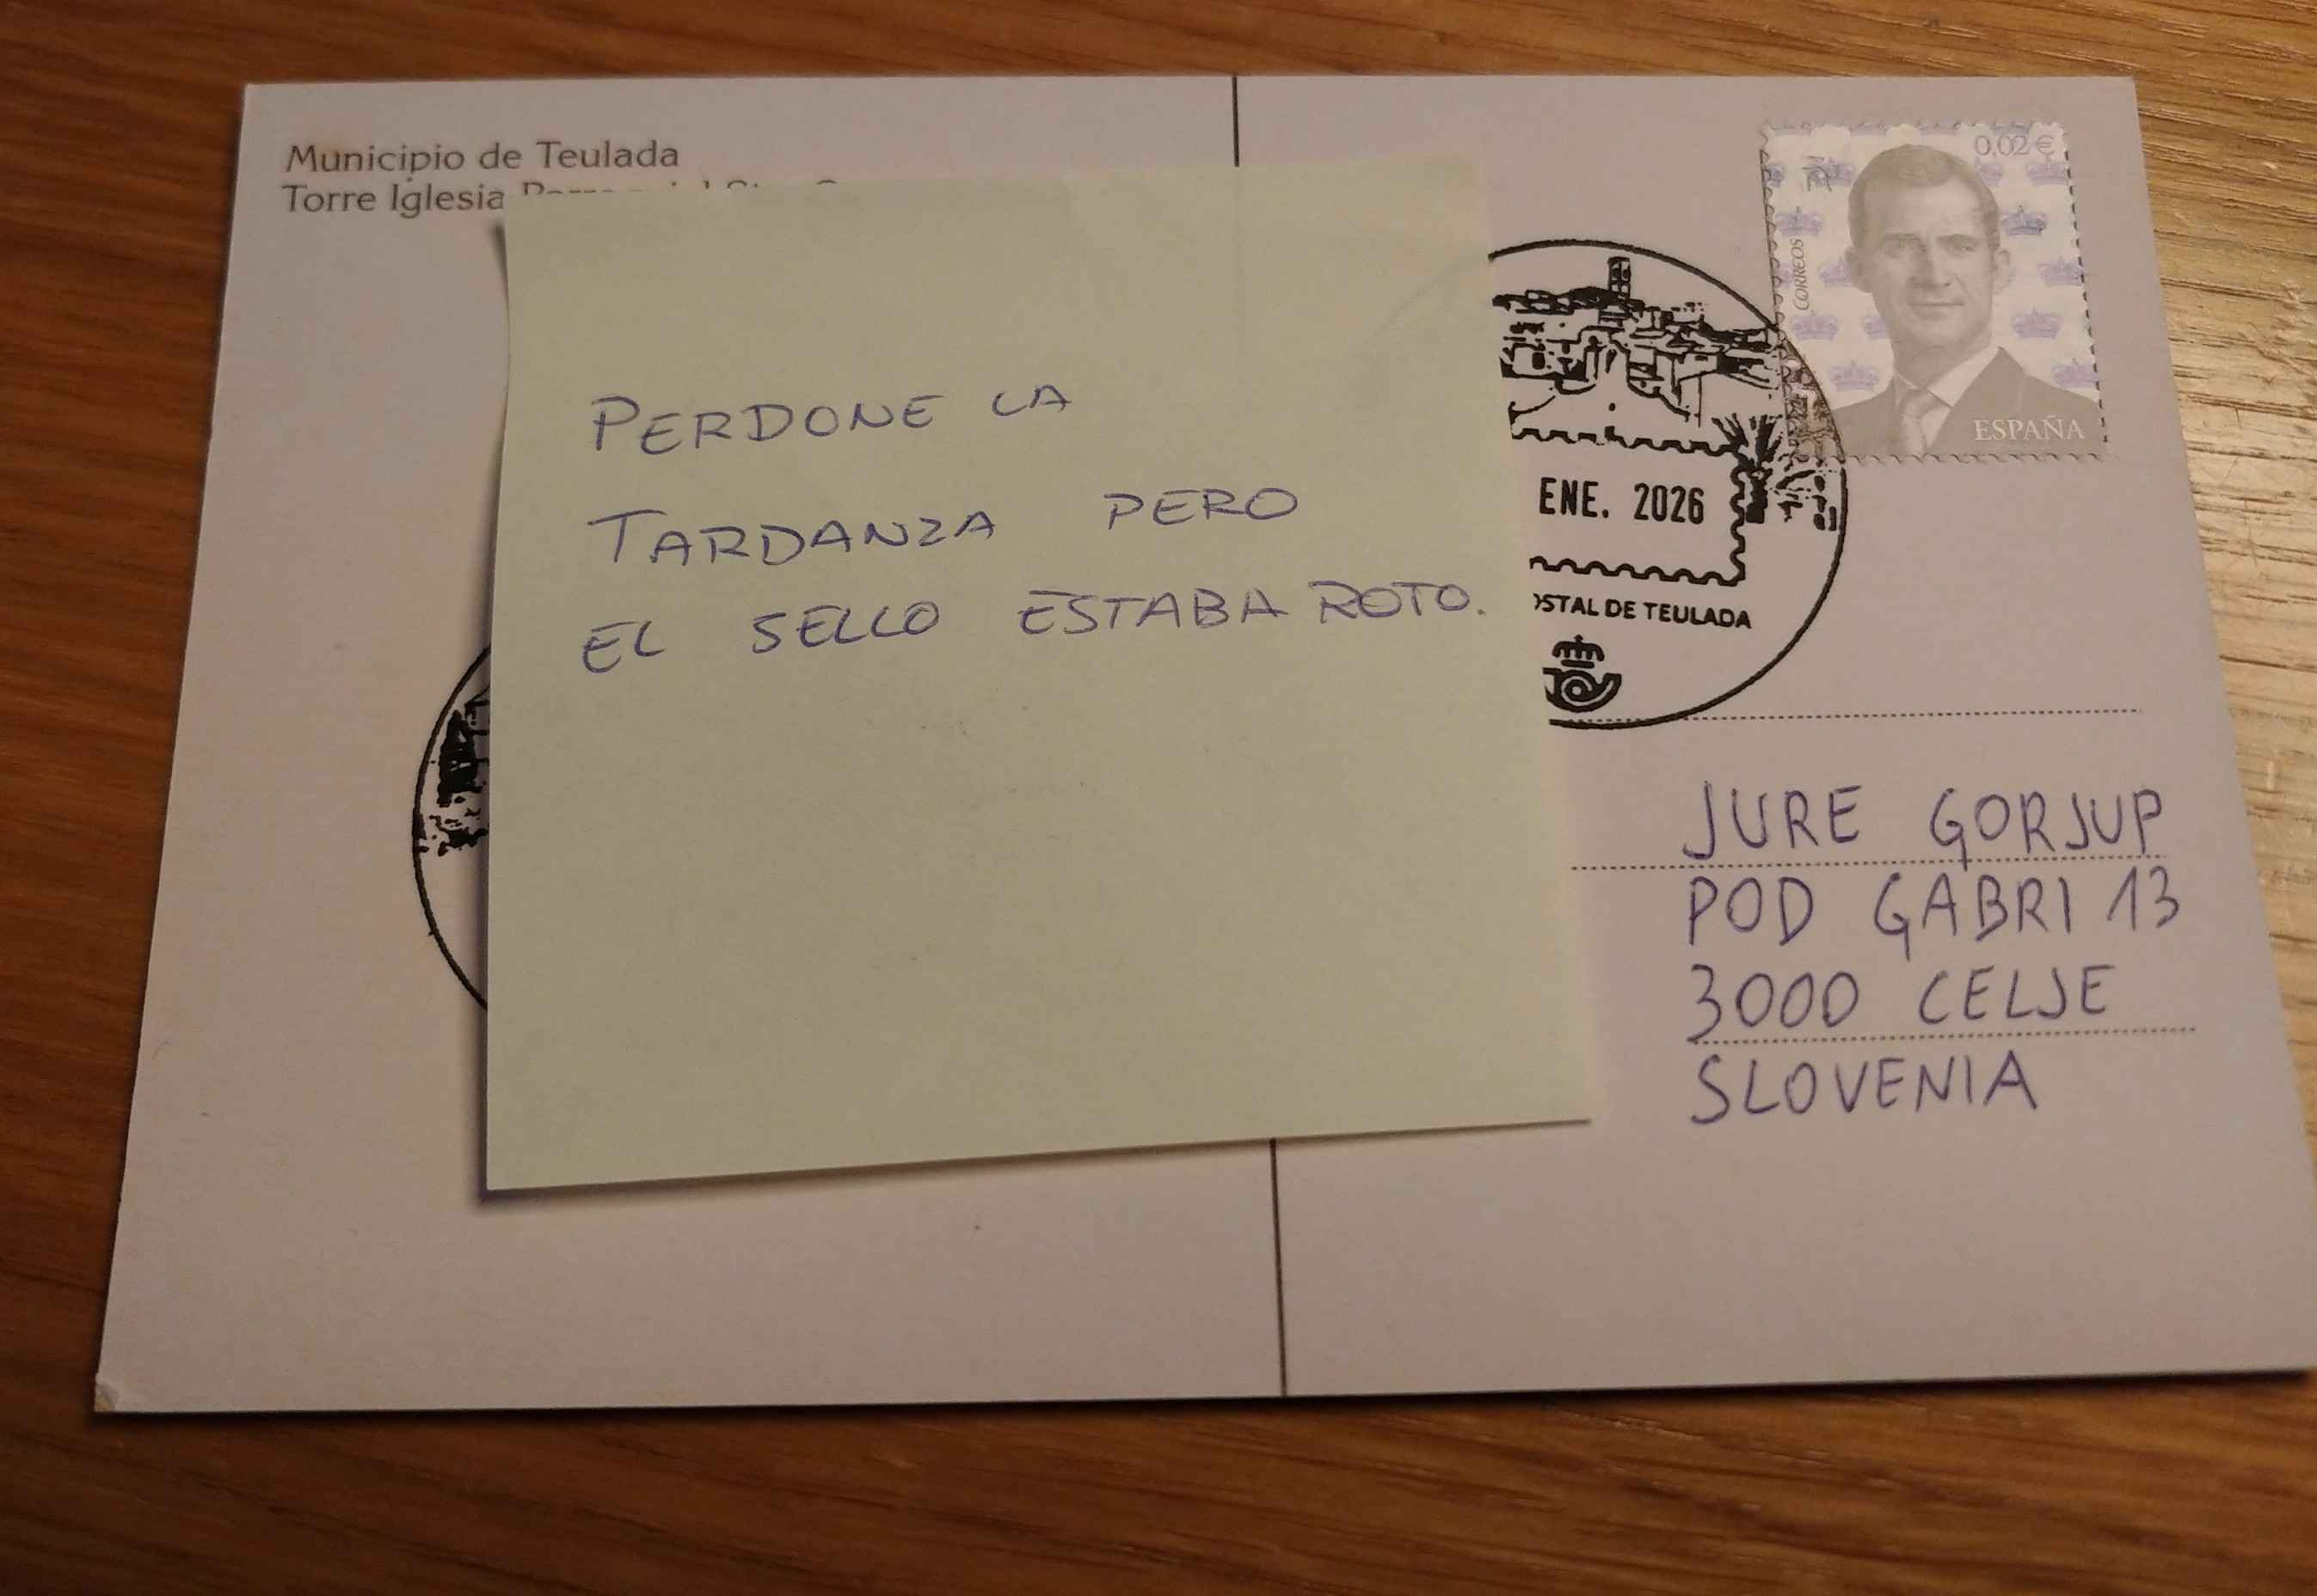 Municipio de Teulada
Torre Iglesia
PERDONE LA
TARDANZA PERO
EL SELLO ESTABA ROTO.
0,02 €
CORREOS
ESPAÑA
ENE. 2026
OSTAL DE TEULADA
JURE GORJUP
POD GABRI 13
3000 CELJE
SLOVENIA